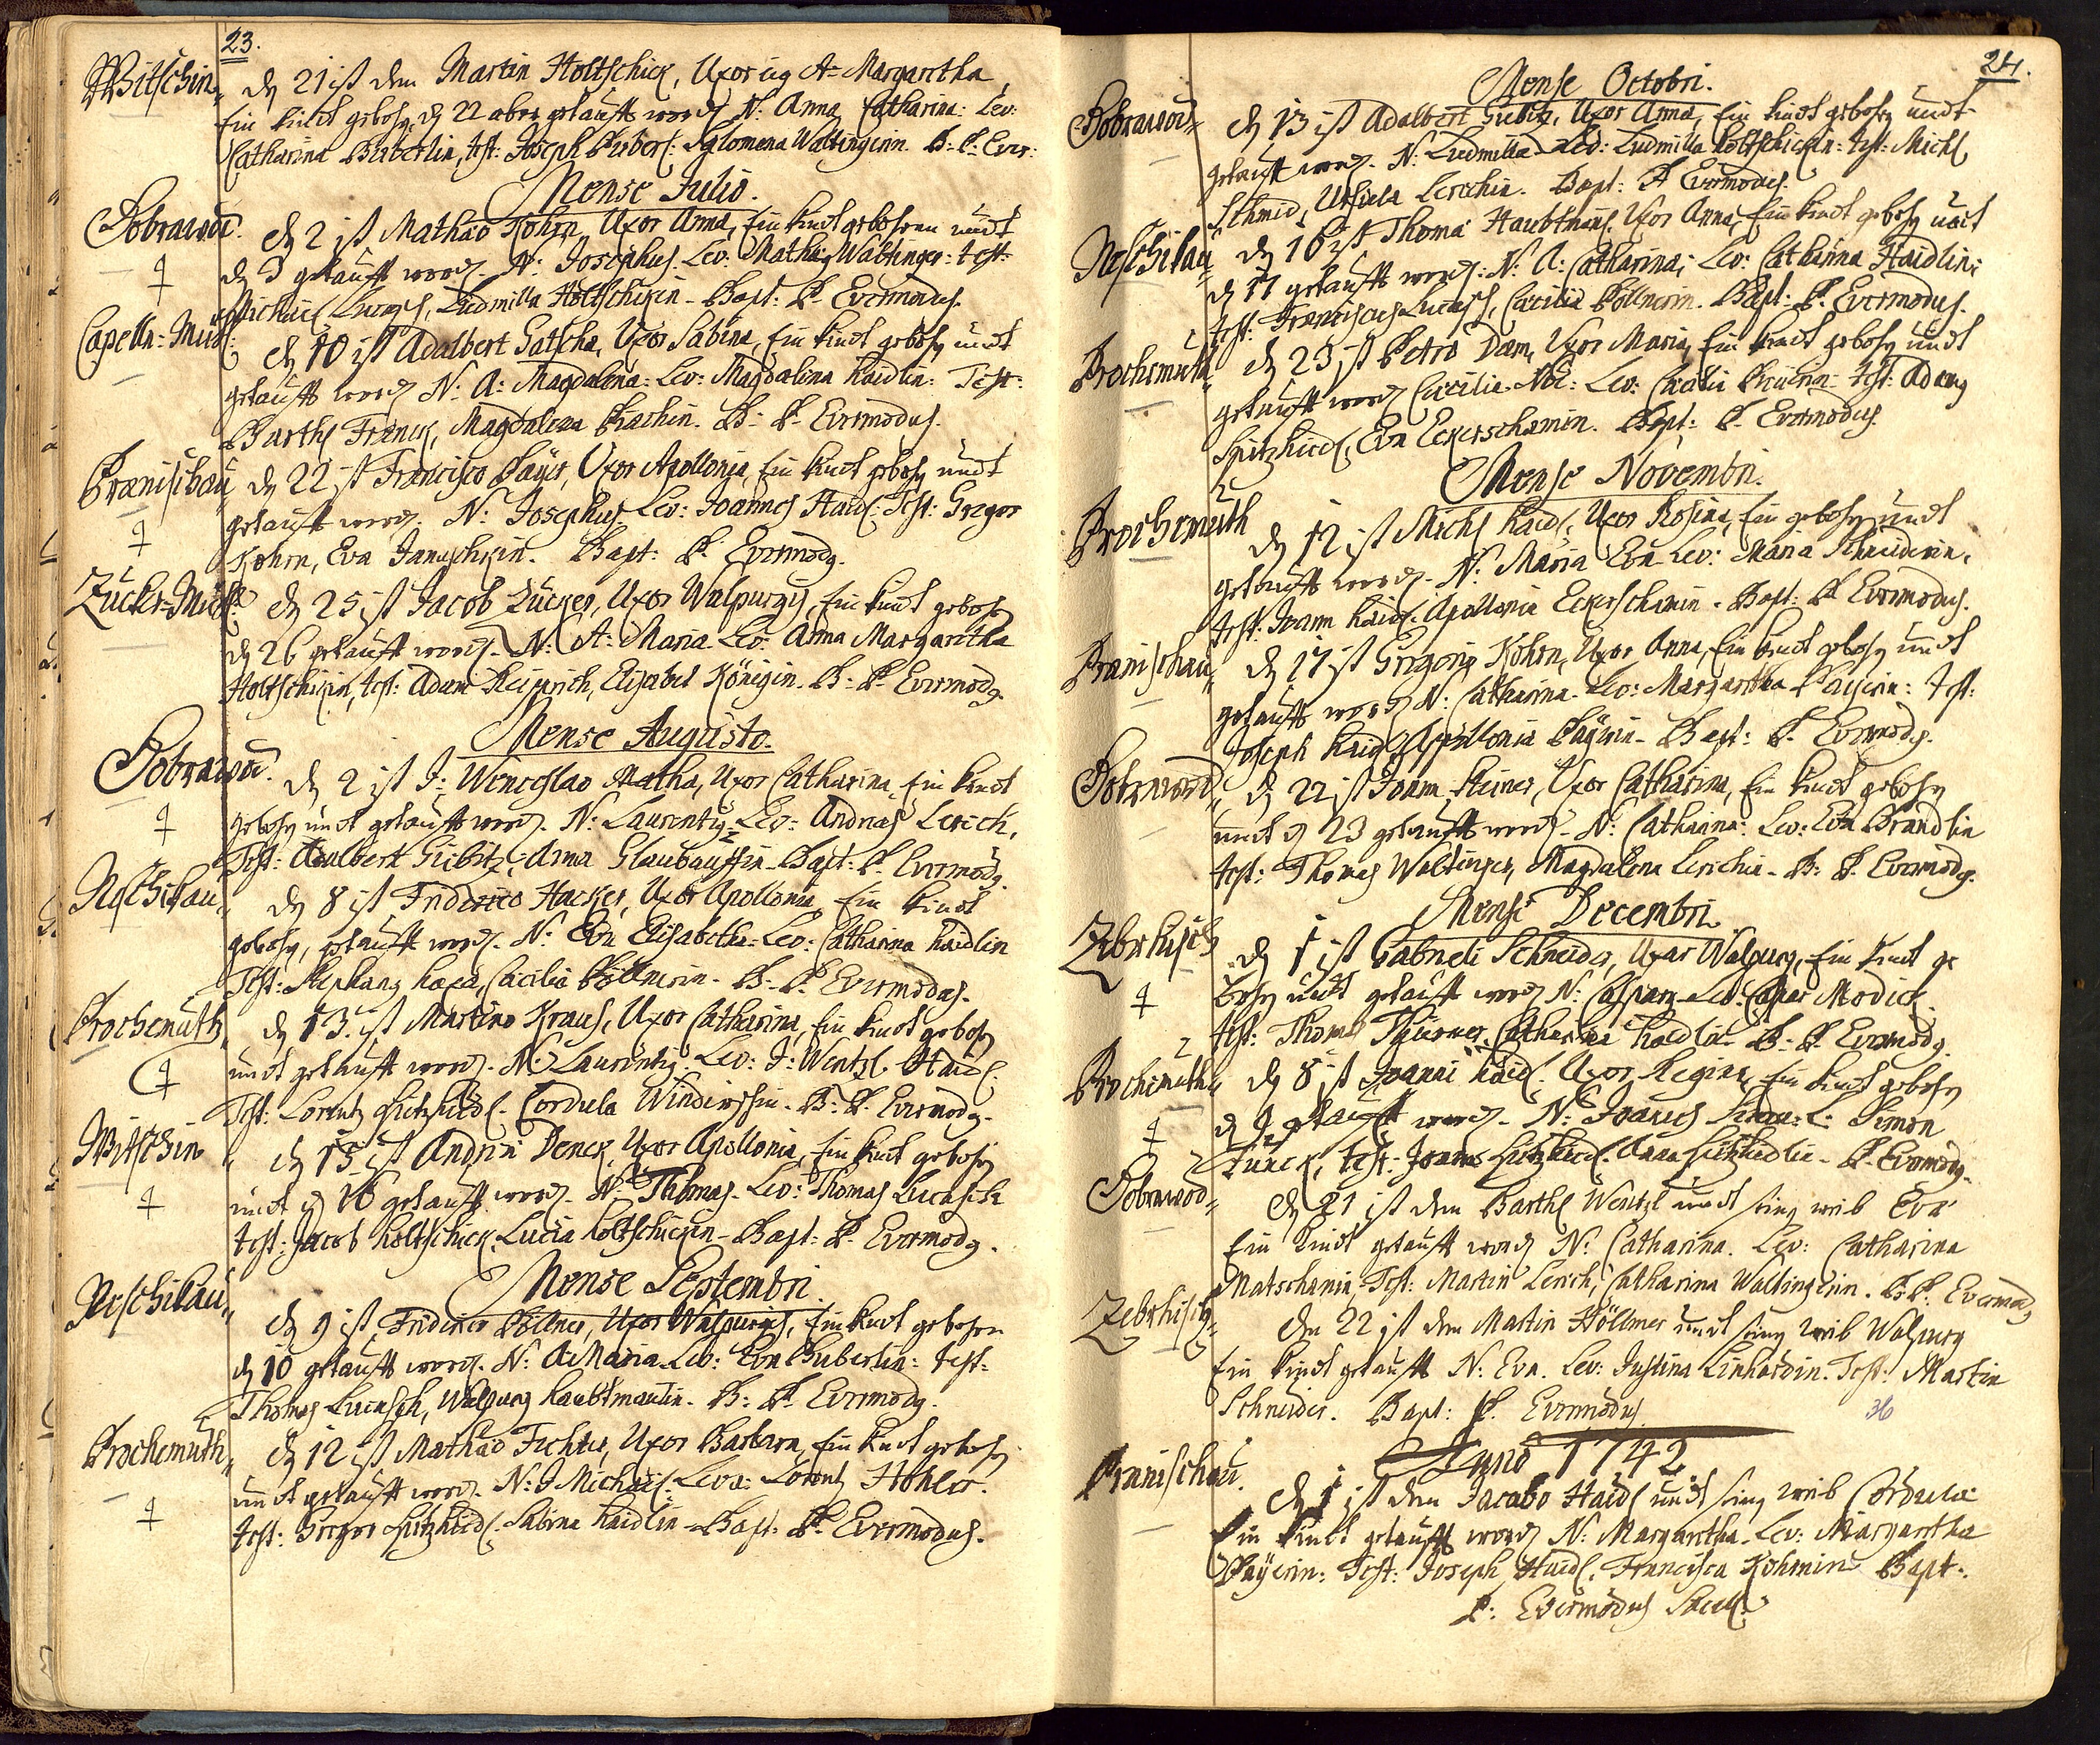 23.
Witschin
dn 21 ist dem Martin Holtschick, Uxor A: Margaretha
Ein Kindt gebohrn, dn 22 aber getaufft wordn N: Anna Catharina: Lev:
Catharina Biberlin, test: Joseph Biberl: Walttingerin. B: P. Ever:
Mense Julio.
Dobrawod.
dn 2 ist Mathæo Kohrn, Uxor Anna, Ein Kindt gebohren undt
dn 3 getaufft wordn. N: Josephus. Lev: Mathias Waltinger: test:
Michael Lucasch, Ludmilla Holtschickin. Bapt: P. Evermodus.
Capelln: Mühl:
dn 10 ist Adalbert Gatscha, Uxor Sabina, Ein Kindt gebohrn undt
getaufft wordn N: A: Magdalena: Lev: Magdalena Haidlin: Test:
Barthl Franck, Magdalena Bachin. B: P. Evermodus.
Branischau
dn 22 ist Francisco Bayer, Uxor Apollonia, Ein Kindt gebohrn undt
getaufft wordn. N: Josephus Lev: Joannes Haidl: Test: Gregor
Kohrn, Eva Januschkin. Bapt: P. Evermodg.
Zucker-Mühl:
dn 25 ist Jacob Zucker, Uxor Walpurgis, Ein Kindt gebohrn
dn 26 getaufft wordn. N: A: Maria Lev: Anna Margaretha
Holtschickin, test: Adam Heinrich, Elisabet Königin. B: P. Evermodg.
Mense Augusto.
Dobrawod.
dn 2 ist J: Wenceslao Matha, Uxor Catharina, Ein Kindt
gebohrn undt getaufft wordn. N: Laurentig Lev: Andreas Lerich,
Test: Adalbert Gibitz, Anna Glaubauffin Bapt: P. Evermodg.
Neschikau
dn 8 ist Friderico Hacker, Uxor Apollonia, Ein Kindt
gebohrn, getaufft wordn. N: Eva Elisabetha: Lev: Catharina Haidlin
Test: Stephang Haxa, Cæcilia Pöllnerin. B: P. Evermodus.
Prochomuth
dn 13 ist Martino Kraus, Uxor Catharina, Ein Kindt gebohrn
undt getaufft wordn. N: Laurentig. Lev: J: Wentzl Haidl.
Test: Lorentz Spitzhiedl. Cordula . B: P. Evermodg.
Witschin
dn 15 ist Andrea Denck, Uxor Apollonia, Ein Kindt gebohrn
undt dn 16 getaufft wordn. N: Thomas. Lev: Thomas Lucasch
test: Jacob Holtschick, Lucia Holtschickin. Bapt: P. Evermodg.
Mense Septembri.
Neschikau
dn 9 ist Friderico Pöllner, Uxor Walpurgis, Ein Kindt gebohrn
dn 10 getaufft wordn. N: A: Maria Lev: Eva Biberlin: test:
Thomas Lucasch, Walpurg Haubtmanin. B: P. Evermodg.
Prochomuth
dn 12 ist Mathæo Fichter, Uxor Barbara, Ein Kindt gebohrn
undt getaufft wordn. N: J Michael: Leva: Lorentz Köhler.
test: Gregor Spitzhiedl. Sabina Haidlin Bapt: P. Evermodus.
24.
Mense Octobri.
Dobrawod
dn 13 ist Adalbert Gibitz, Uxor Anna, Ein Kindt gebohrn undt
getaufft wordn. N: Ludmilla. Lev: Ludmilla Holtschickin: test: Michl
Schmid, Ursula Lerichin. Bapt: P. Evermodus.
Neschikau
dn 16 ist Thoma Haubtman, Uxor Anna, Ein Kindt gebohrn undt
dn 17 getaufft wordn: N: A: Catharina; Lev: Catharina Haidlin;
test: Franciscus Lucasch, Cæcilia Pöllnerin. Bapt: P. Evermodus.
Prochomuth
dn 23 ist Petro Dam, Uxor Maria, Ein Kindt gebohrn undt
getaufft wordn Cæcilia. Lev: test: Adamg
Spitzhiedl, Eva Eckerschamin. Bapt: P. Evermodus.
Mense Novembri.
Prochomuth
dn 12 ist Michl Haidl, Uxor Rosina, Ein gebohrn undt
getaufft wordn. N: Maria Eva Lev: Maria Schneiderin.
test: Joann Haidl. Apollonia Eckerschamin. Bapt: P. Evermodus.
Branischau
dn 17 ist Gregorig Kohrn, Uxor Anna, Ein Kindt gebohrn undt
getaufft wordn N: Catharina. Lev: Margaretha Bayerin: Test:
Joseph Haidl, Apollonia Bayerin. Bapt: P. Evermodg.
Dobrawod
dn 22 ist Joann Steiner, Uxor Catharina, Ein Kindt gebohrn
undt dn 23 getaufft wordn. N: Catharina: Lev: Eva Brandlin
test: Thomas Waltinger, Magdalena Lerichin. B: P. Evermodg.
Mense Decembri.
Zebrhisch
dn 1 ist Gabrieli Schneider, Uxor Walpurg, Ein Kindt ge
bohrn undt getaufft wordn N: Casparg. Lev: Caspar Modick.
test: Thomas Thurner, Catharina Haidlin. B: P. Evermodg.
Prochomuth
dn 8 ist Joanni Haidl. Uxor Regina, Ein Kindt gebohrn
dn 9 getaufft wordn. N: Joannes L: Simon
Funck, test: Joann Spitzhiedl. Anna Spitzhiedlin. P. Evermodg.
Dobrawod
dn 21 ist dem Barthl Wentzl undt seing weib Eva
Ein Kindt getaufft wordn N: Catharina. Lev: Catharina
Matschamin. Test: Martin Lerich, Catharina Waltingerin. B: P: Evermodg
Zebrhisch
den 22 ist dem Martin Köllmer undt seing weib Walpurg
Ein Kindt getaufft N: Eva. Lev: Justina Linhardin. Test: Martin
Schneider. Bapt: P. Evermodus.
36
Anno 1742
Branischau.
dn 1 ist dem Jacobo Haidl undt seing weib Cordula
Ein Kindt getaufft wordn N: Margaretha. Lev: Margaretha
Bayerin: Test: Joseph Haidl. Francisca Kohrnin Bapt:
P: Evermodus